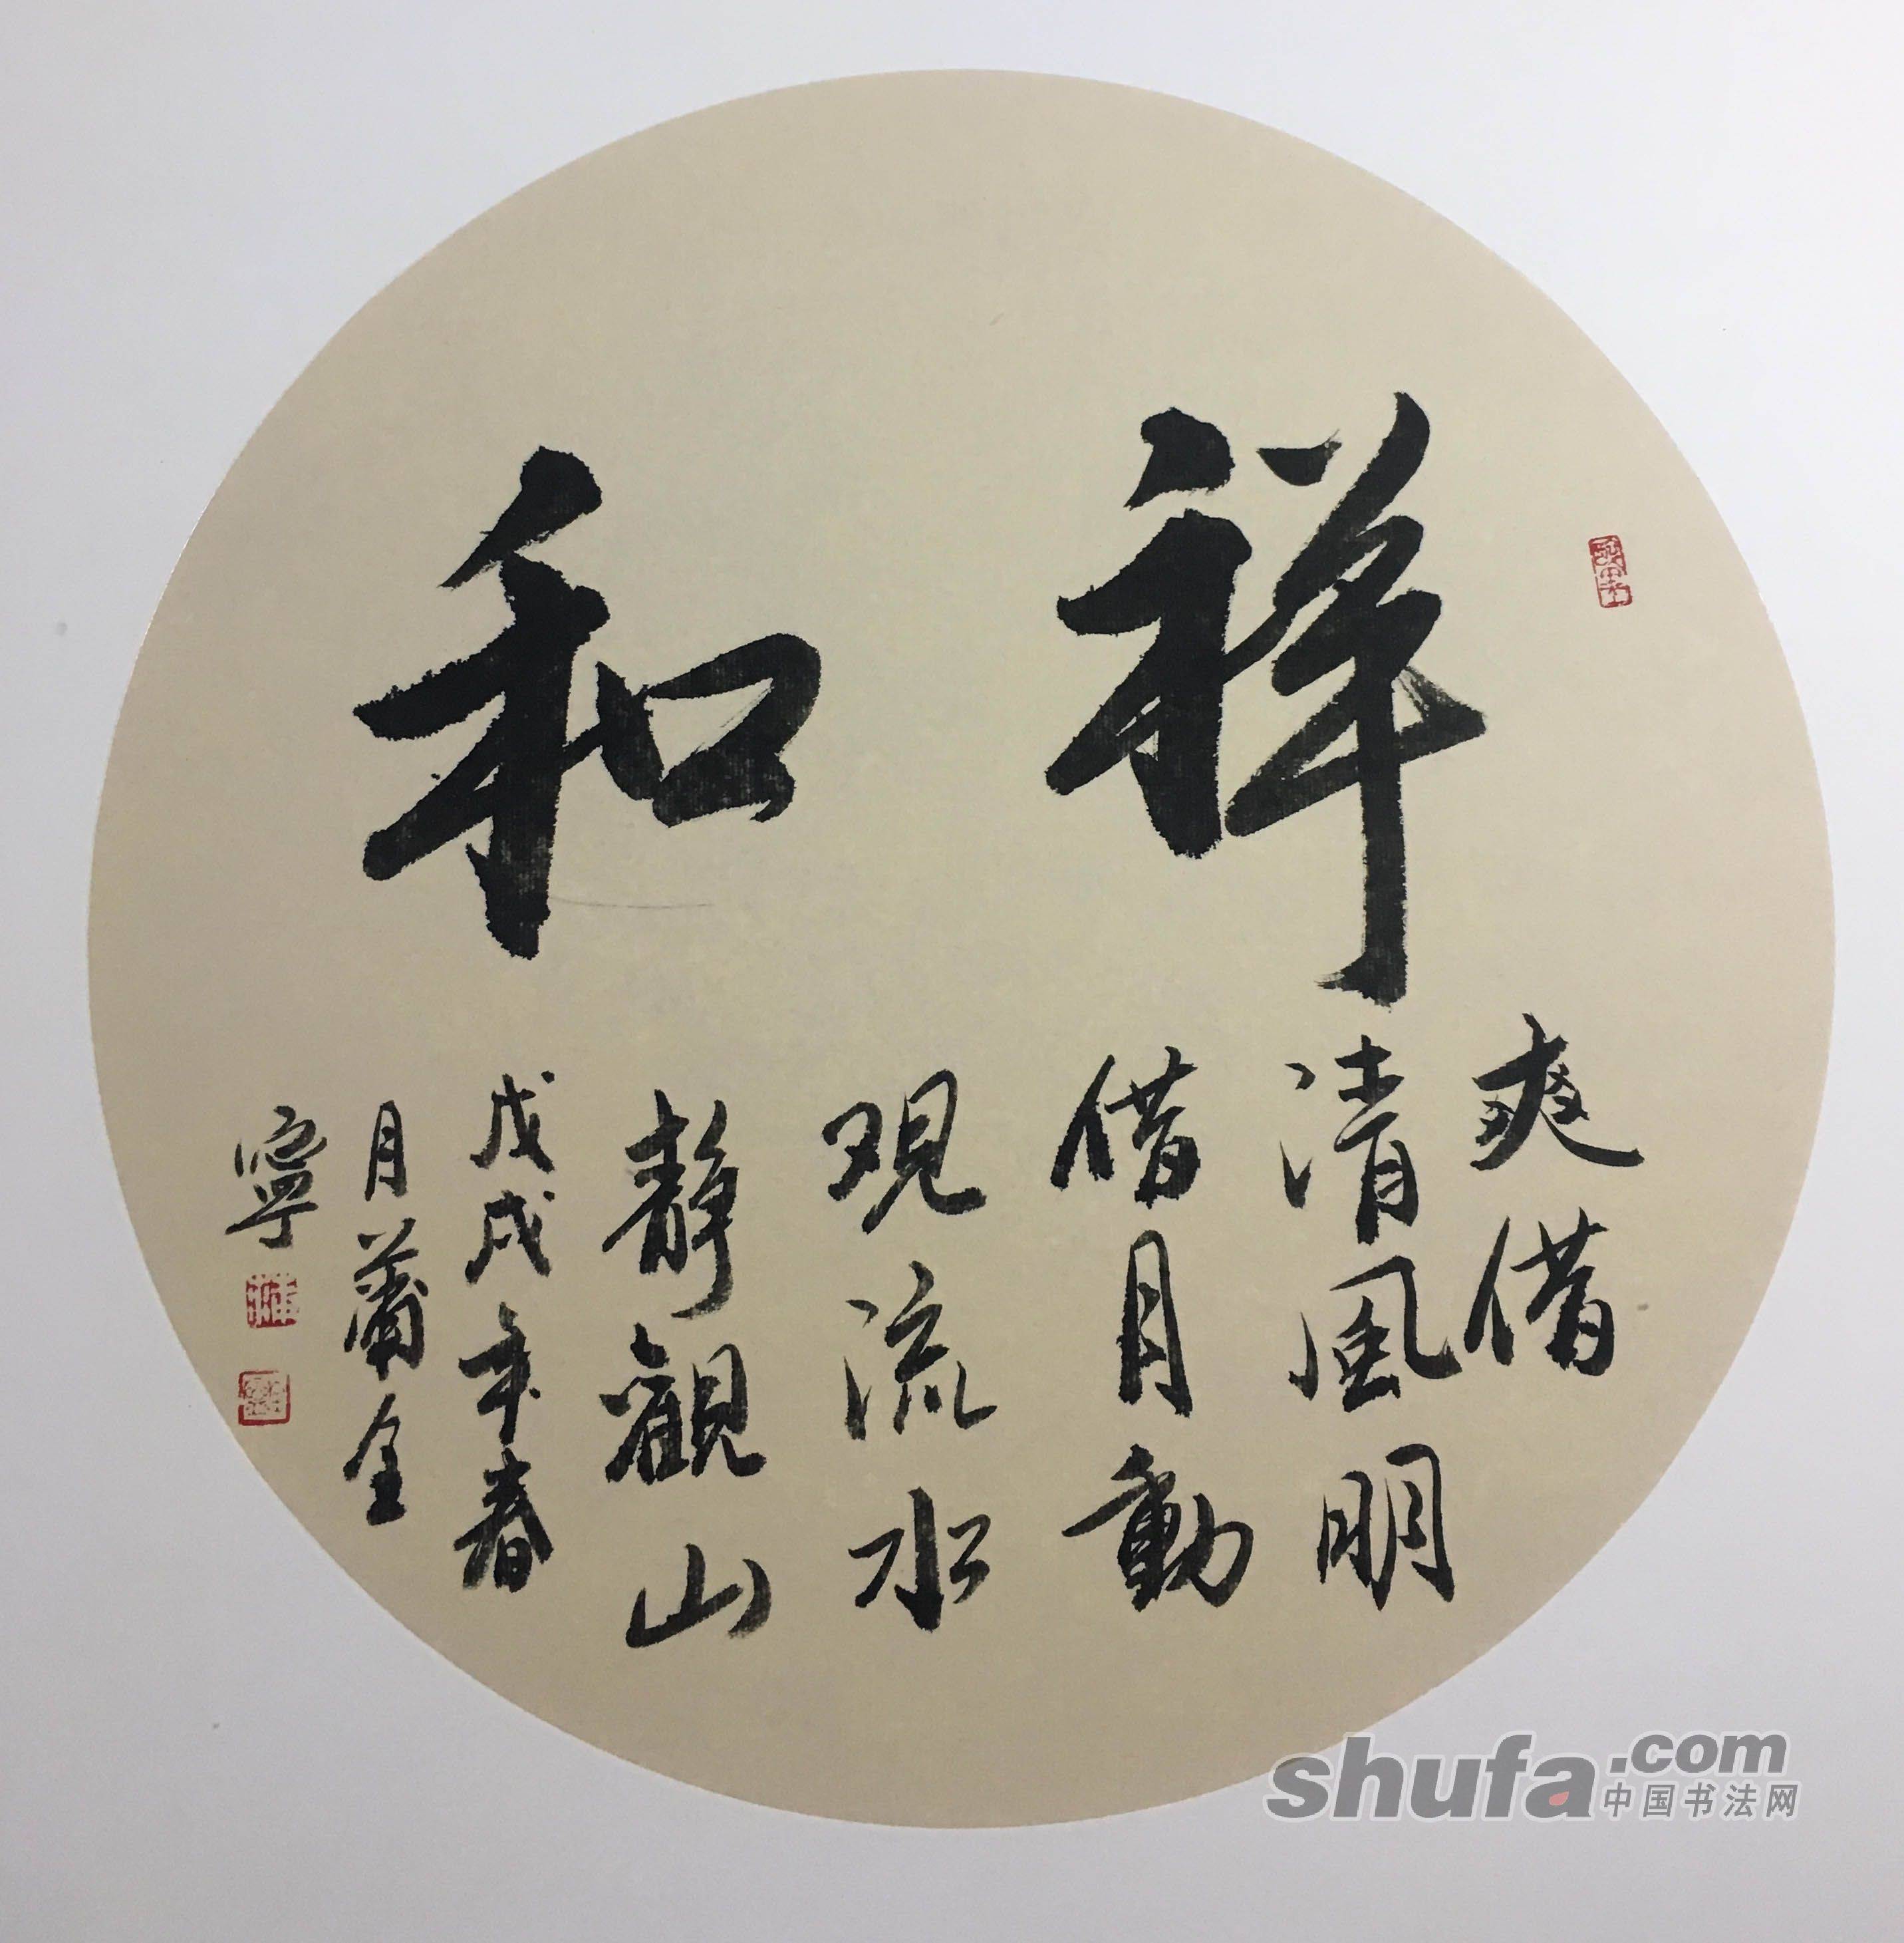 祥和
爽借
清風明
借月動
观流水
靜觀山
戊戌年春
月蕭全
寧
shufa.com
中国书法网